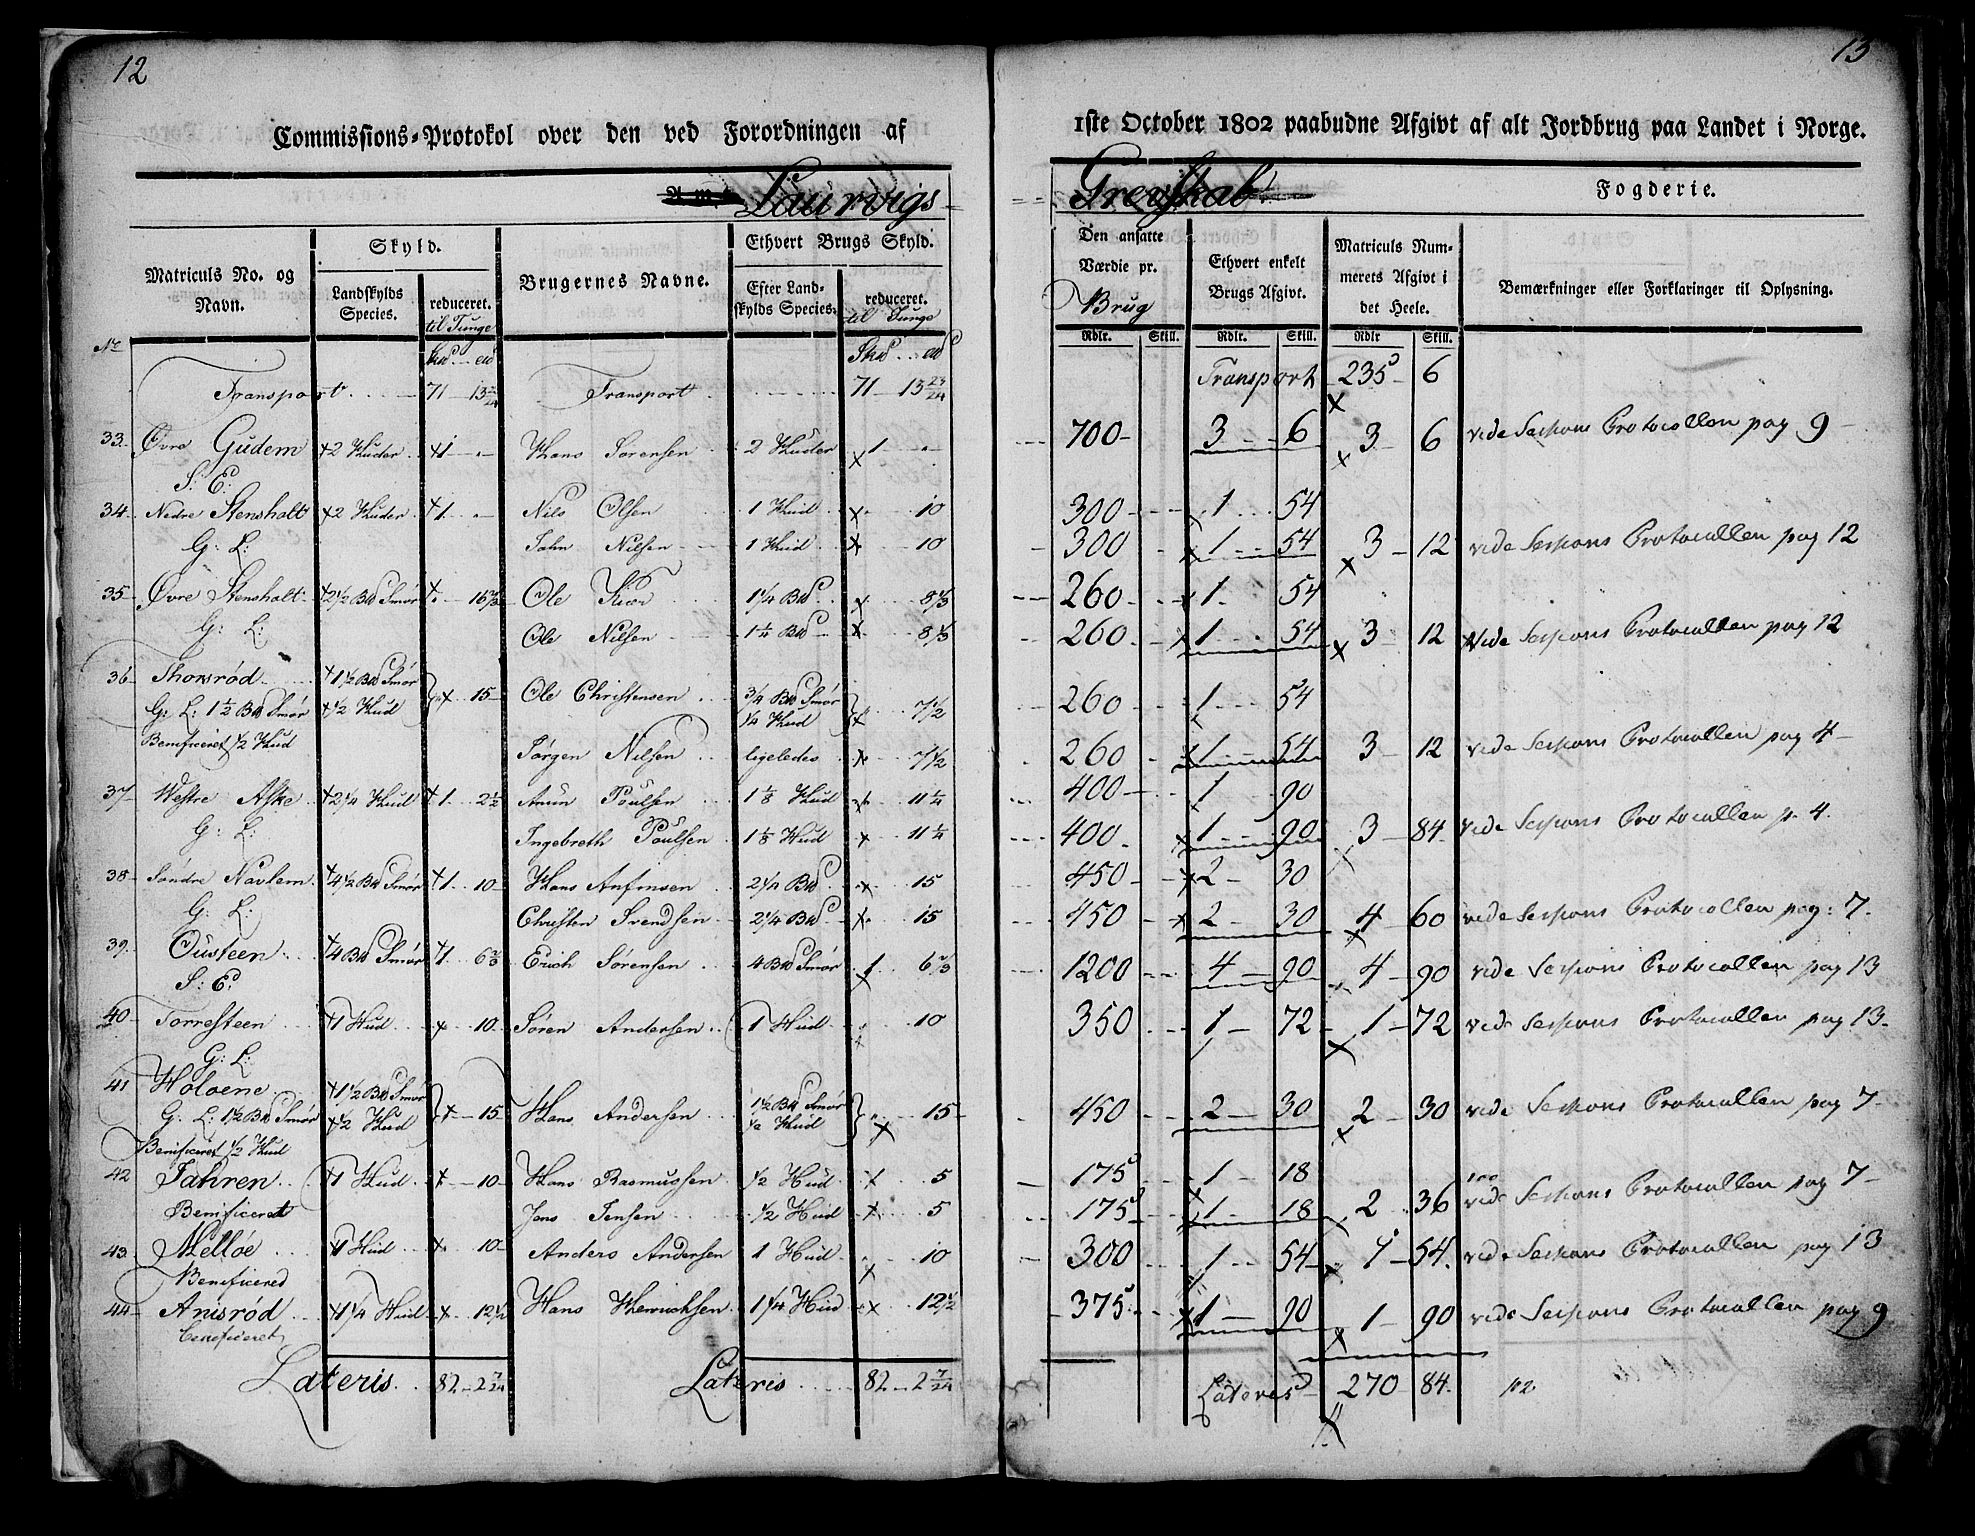 12
Commissions-Protokol over den ved Forordningen af
Laurvigs
Matriculs No. og Navn.
Skyld.
Landskylds Species.
reduceret.
til Tunge
Brugernes Navne.
Ethvert Brugs Skyld.
Efter Landskylds Species.
reduceret.
til Tunge
No
Transport 71 - 13 23/24 Transport 71 - 13 23/24
33. Øvre Gudem 2 Huder 1 - Hans Sørensen 2 Huder 1 -
S: E:
34 Nedre Stensholt 2 Huder 1 - Nils Olsen 1 Hud 10
G: L: John Nilsen 1 Hud 10
35 Øvre Stensholt 2½ Bd Smør 16 2/3 Ole 1¼ Bd 8 1/3
G: L: Ole Nilsen 1¼ Bd 8 1/3
36 Thorsrød 1½ Bd Smør
G: L: 1½ Bd Smør ½ Hud 15 Ole Christensen ¾ Bd Smør ¼ Hud 7½
Benificeret ½ Hud
Jørgen Nilsen ligeledes 7½
37 Westre Aske 2¼ Hud 1 2½ Anun Poulsen 1⅛ Hud 11¼
G: L: Ingebreth Poulsen 1⅛ Hud 11¼
38 Søndre Navlem 4½ Bd Smør 1 10 Hans Anfinsen 2¼ Bd 15
G: L: Christen Svendsen 2¼ Bd 15
39. Ousteen 4 Bd Smør 1 6 2/3 Erich Sørensen 4 Bd Smør 1 6 2/3
S: E:
40 Torresteen 1 Hud 10 Søren Andersen 1 Hud 10
G: L:
41 Holvene 1½ Bd Smør
G: L: 1½ Bd Smør ½ Hud 15 Hans Andersen 1½ Bd Smør ½ Hud 15
Benificeret ½ Hud
42 Jahren 1 Hud 10 Hans Rasmussen ½ Hud 5
Benificeret Jens Jensen ½ Hud 5
43 Melløe 1 Hud 10 Anders Andersen 1 Hud 10
Benificered
44 Anisrød 1¼ Hud 12½ Hans Henrichsen 1¼ Hud 12½
Beneficeret
Lateris 82 - 2 7/24 Lateris 82 - 2 7/24
13
1ste October 1802 paabudne Afgivt af alt Jordbrug paa Landet i Norge.
Grevskab
Fogderie.
Den ansatte Værdie pr.
Brug
Ethvert enkelt Brugs Afgivt.
Matriculs Nummerets Afgivt i det Heele.
Bemærkninger eller Forklaringer til Oplysning.
Rdlr. Skill. Rdlr. Skill. Rdlr Skill.
Transport 235 - 6
700 - 3 - 6 3 6 vide Sessions Protocollen pag 9
300 - 1 54
300 - 1 54 3 - 12 vide Sessions Protocollen pag 12
260 - 1 54
260 - 1 54 3 12 vide Sessions Protocollen pag 12
260 1 54
260 - 1 54 3 - 12 vide Sessions Protocollen pag 4
400 - 1 90
400 - 1 90 3 - 84 vide Sessions Protocollen p. 4.
450 - 2 - 30
450 - 2 - 30 4 60 vide Sessions Protocollen pag: 7.
1200 4 - 90 4 - 90 vide Sessions Protocollen pag 13
350 1 - 72 1 - 72 vide Sessions Protocollen pag 13.
450 2 - 30 2 - 30 vide Sessions Protocollen pag 7
175 1 - 18
175 1 - 18 2 36 vide Sessions Protocollen pag 7
300 1 54 1 - 54. vide Sessions Protocollen pag 13
375 1 - 90 1 - 90 vide Sessions Protocollen pag 9
Lateris 270 - 84.